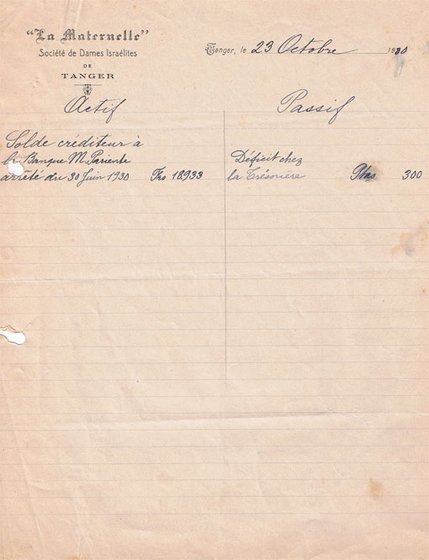 "La Maternelle"
Société de Dames Israélites
DE
TANGER
Tanger, le 23 Octobre 1930
Actif
Passif
Solde créditeur à
la Banque M. Pariente
arrêté du 30 Juin 1930 Frs 18933
Déficit chez
la Trésorière Ptas 300